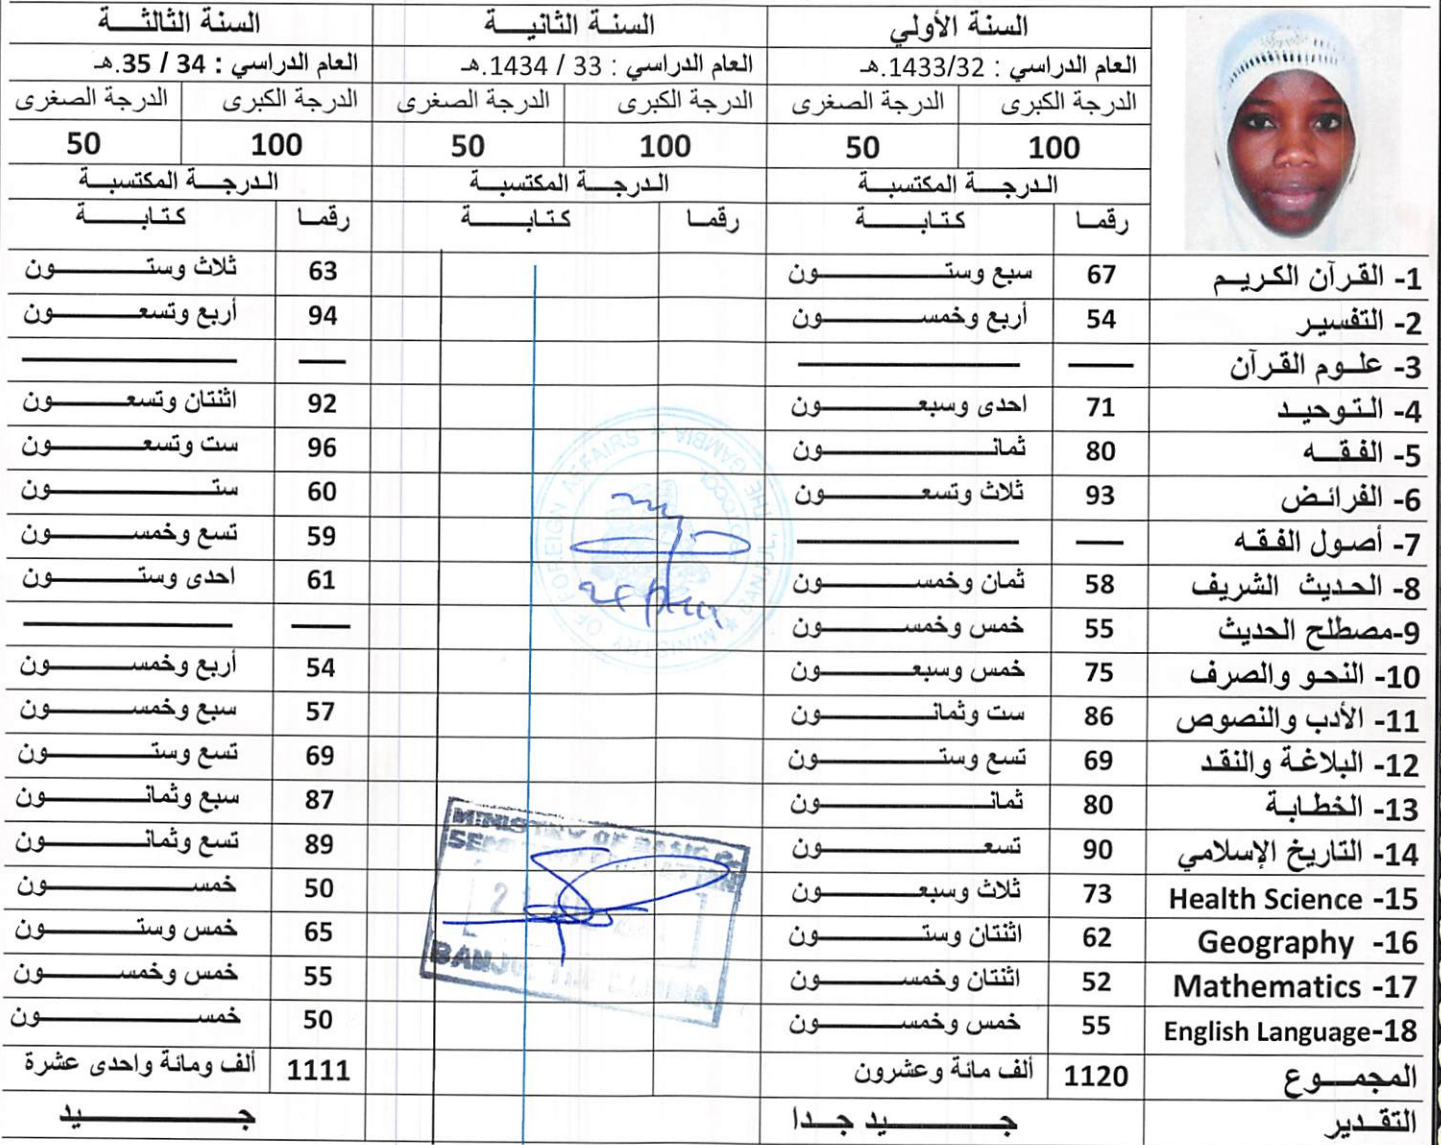 السنة الأولي السنة الثانية السنة الثالثة
العام الدراسي : 1433/32.هـ العام الدراسي : 33 / 1434.هـ العام الدراسي : 34 / 35.هـ
الدرجة الكبرى الدرجة الصغرى الدرجة الكبرى الدرجة الصغرى الدرجة الكبرى الدرجة الصغرى
100 50 100 50 100 50
الدرجة المكتسبة الدرجة المكتسبة الدرجة المكتسبة
رقما كتابة رقما كتابة رقما كتابة
1- القرآن الكريم 67 سبع وستون 63 ثلاث وستون
2- التفسير 54 أربع وخمسون 94 أربع وتسعون
3- علوم القرآن — — — —
4- التوحيد 71 احدى وسبعون 92 اثنتان وتسعون
5- الفقه 80 ثمانون 96 ست وتسعون
6- الفرائض 93 ثلاث وتسعون 60 ستون
7- أصول الفقه — — 59 تسع وخمسون
8- الحديث الشريف 58 ثمان وخمسون 61 احدى وستون
9-مصطلح الحديث 55 خمس وخمسون — —
10- النحو والصرف 75 خمس وسبعون 54 أربع وخمسون
11- الأدب والنصوص 86 ست وثمانون 57 سبع وخمسون
12- البلاغة والنقد 69 تسع وستون 69 تسع وستون
13- الخطابة 80 ثمانون 87 سبع وثمانون
14- التاريخ الإسلامي 90 تسعون 89 تسع وثمانون
Health Science -15 73 ثلاث وسبعون 50 خمسون
Geography -16 62 اثنتان وستون 65 خمس وستون
Mathematics -17 52 اثنتان وخمسون 55 خمس وخمسون
English Language-18 55 خمس وخمسون 50 خمسون
المجموع 1120 ألف مائة وعشرون 1111 ألف ومائة واحدى عشرة
التقدير جيد جدا جيد
MINISTRY OF FOREIGN AFFAIRS ★ BANJUL, THE GAMBIA ★
MINISTRY OF BASIC &
BANJUL THE GAMBIA